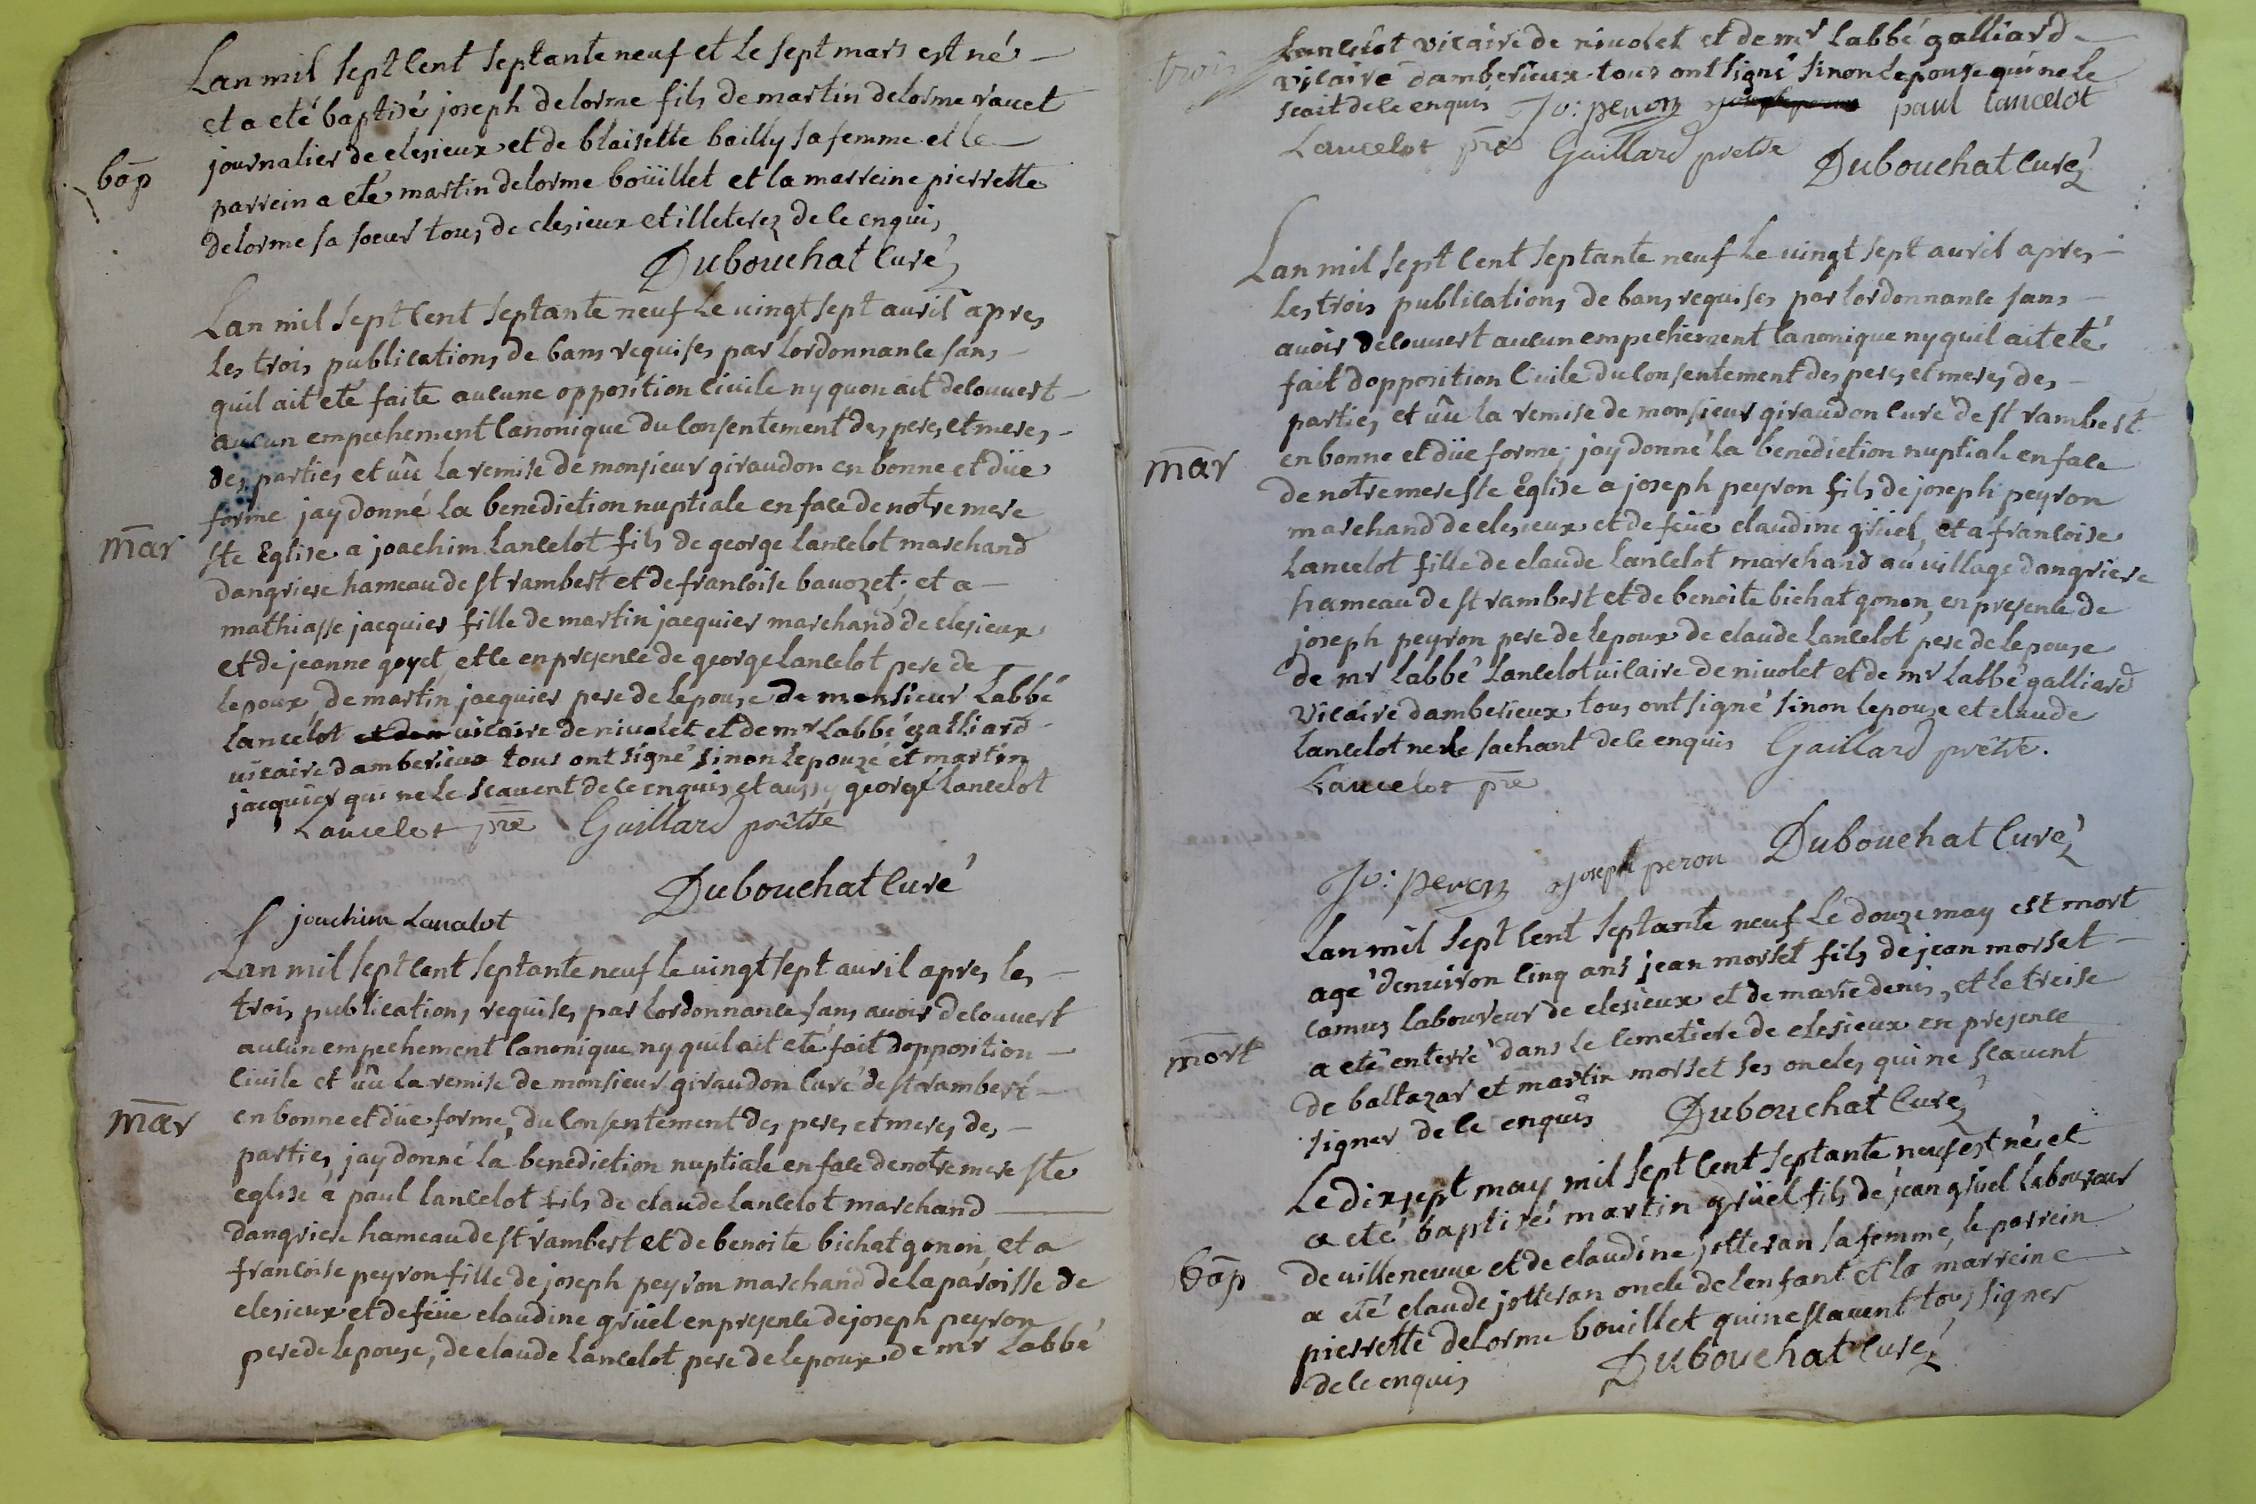 Lan mil sept cent septante neuf et le sept mars est né
et a eté baptisé joseph delorme fils de martin delorme ravet
journalier de clesieux et de blaisette bailly sa femme et le
bap
parrein a eté martin delorme boüillet et la marreine pierrette
delorme sa soeur tous de clesieux et illeterez de ce enquis
Dubouchat curé
Lan mil sept cent septante neuf le vingt sept avril apres
les trois publications de bans requises par lordonnance sans
quil ait eté faite aucune opposition civile ny quon ait decouvert
aucun empechement canonique du consentement des peres et meres
des parties et vû la remise de monsieur giraudon en bonne et düe
forme jay donné la benediction nuptiale en face de notre mere
mar
ste Eglise a joachim Lancelot fils de george Lancelot marchand
dangriere hameau de st rambert et de francoise bavozet, et a
mathiasse jacquier fille de martin jacquier marchand de clesieux
et de jeanne goyet et ce en presence de george Lancelot pere de
lepoux, de martin jacquier pere de lepouse de monsieur Labbé
Lancelot vicaire de nivolet et de mr Labbé galliard
vicaire damberieux tous ont signé sinon lepouze et martin
jacquier qui ne le scavent de ce enquis et aussy george Lancelot
Lancelot pre Gaillard prêtre
Dubouchat curé
joachim Lancalot
Lan mil sept cent septante neuf le vingt sept avril apres les
trois publications requises par lordonnance sans avoir decouvert
aucun empechement canonique ny quil ait eté fait dopposition
civile et vû la remise de monsieur giraudon curé de st rambert
mar
en bonne et düe forme, du consentement des peres et meres des
parties jay donné la benediction nuptiale en face de notre mere ste
eglise a paul lancelot fils de claude Lancelot marchand
dangriere hameau de st rambert et de benoite bichat gonon, et a
francoise peyron fille de joseph peyron marchand de la paroisse de
clesieux et de feüe claudine grüel en presence de joseph peyron
pere de lepouse, de claude Lancelot pere de lepoux de mr Labbé
trois
Lancelot vicaire de nivolet et de mr Labbé galliard
vicaire damberieux tous ont signé sinon lepouse qui ne le
scait de ce enquis Jo: peron paul lancelot
Lancelot pre Gaillard prêtre Dubouchat curé
Lan mil sept cent septante neuf le vingt sept avril apres
les trois publications de bans requises par lordonnance sans
avoir decouvert aucun empechement canonique ny quil ait eté
fait dopposition civile du consentement des peres et meres des
parties et vû la remise de monsieur giraudon curé de st rambert
mar
en bonne et düe forme, jay donné la benediction nuptiale en face
de notre mere ste Eglise a joseph peyron fils de joseph peyron
marchand de clesieux et de feüe claudine grüel, et a francoise
Lancelot fille de claude Lancelot marchand au village dangriere
hameau de st rambert et de benoite bichat gonon, en presence de
joseph peyron pere de lepoux de claude Lancelot pere de lepouse
de mr Labbé Lancelot vicaire de nivolet et de mr Labbé galliard
vicaire damberieux tous ont signé sinon lepouse et claude
lancelot ne le sachant de ce enquis Gaillard prêtre.
Lancelot pre
Jo: peron joseph peron Dubouchat curé
Lan mil sept cent septante neuf le douze may est mort
agé denviron cinq ans jean morset fils de jean morset
camus laboureur de clesieux et de marie denis, et le treise
mort
a eté enterré dans le cemetiere de clesieux en presence
de baltazar et martin morset ses oncles qui ne scavent
signer de ce enquis Dubouchat curé
Le dix sept may mil sept cent septante neuf est né et
a eté baptisé martin grüel fils de jean grüel laboureur
bap
de villeneuve et de claudine jotteran sa femme, le parrein
a eté claude jotteran oncle de lenfant et la marreine
pierrette delorme bouillet qui ne scavent tous signer
de ce enquis Dubouchat curé